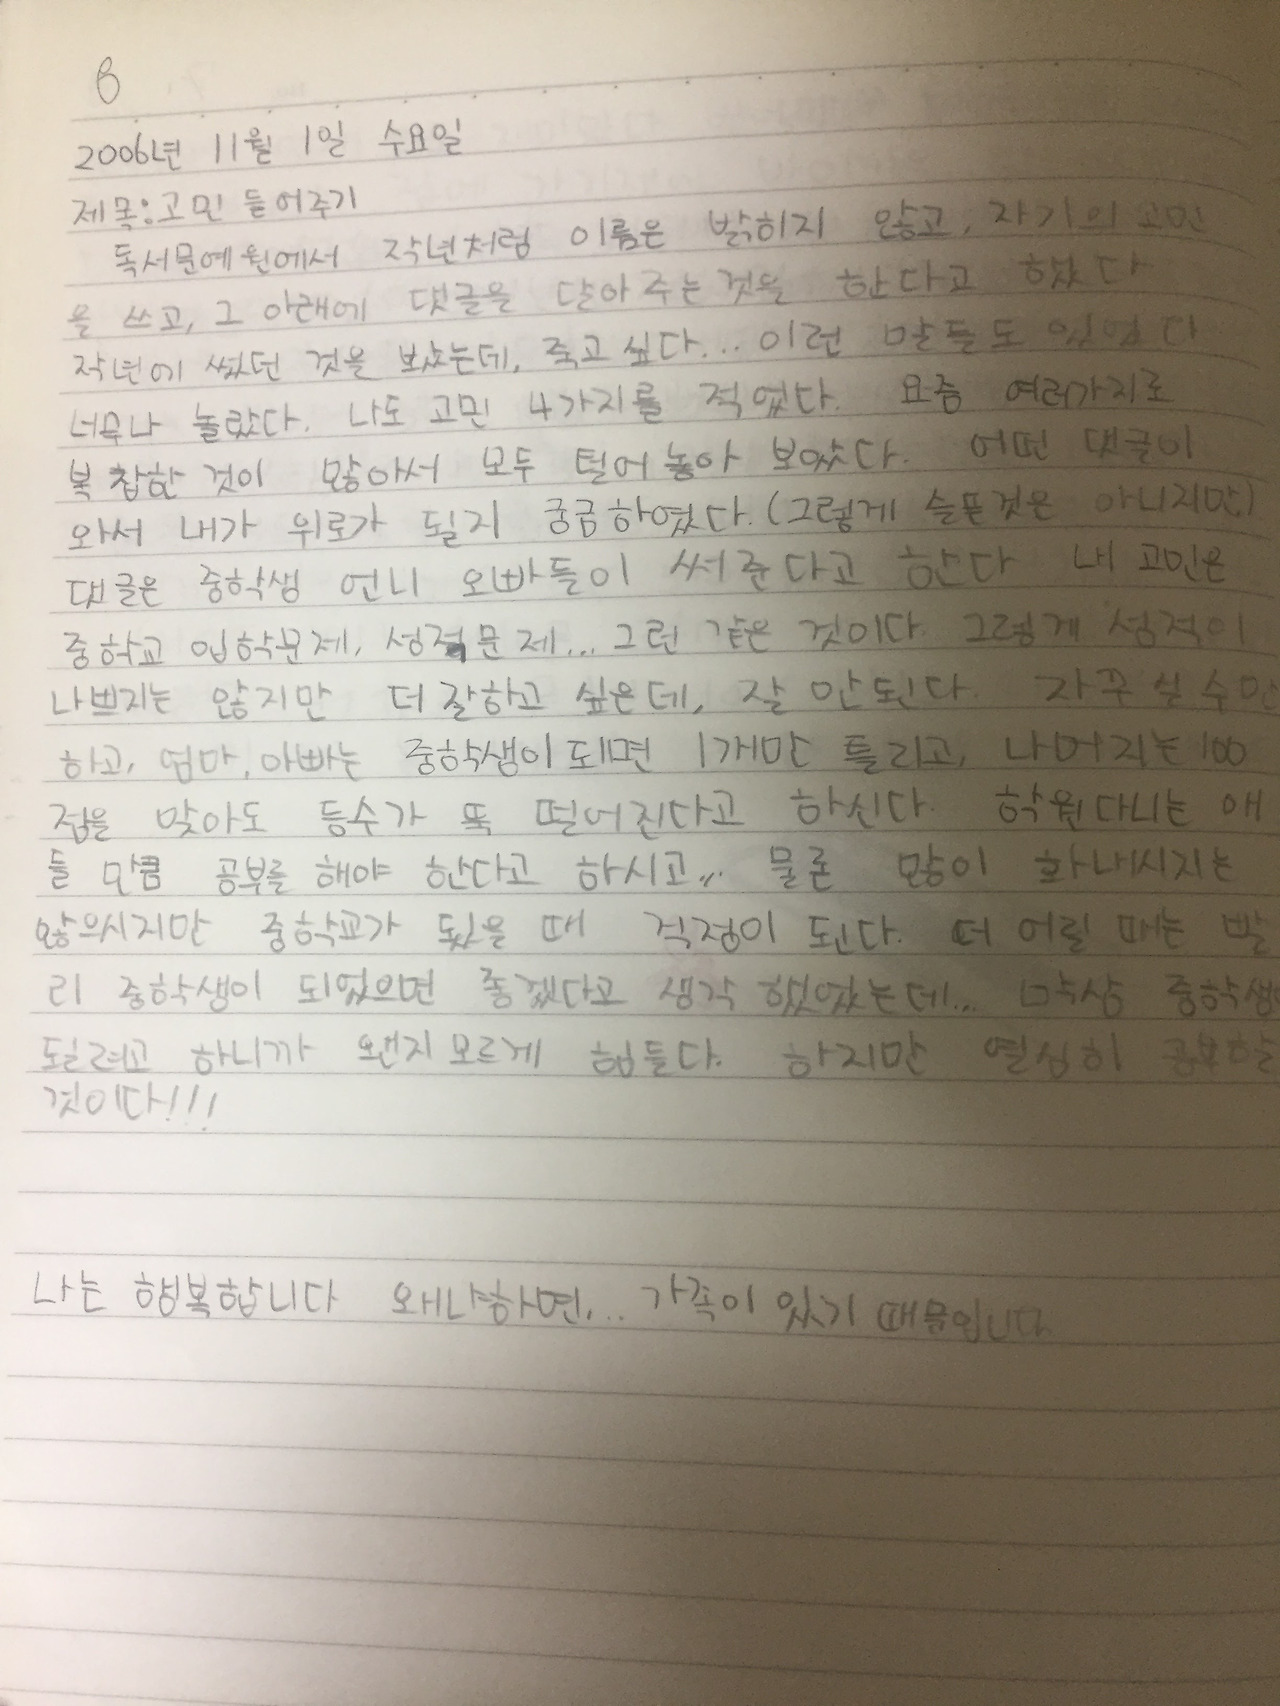 6
2006년 11월 1일 수요일
제목:고민 들어주기
독서문예원에서 작년처럼 이름은 밝히지 않고, 자기의 고민
을 쓰고, 그 아래에 댓글을 달아 주는 것을 한다고 했다
작년에 썼던 것을 보았는데, 죽고싶다... 이런 말들도 있었다
너무나 놀랐다. 나도 고민 4가지를 적었다. 요즘 여러가지로
복잡한 것이 많아서 모두 털어놓아 보았다. 어떤 댓글이
와서 내가 위로가 될지 궁금하였다. (그렇게 슬픈것은 아니지만)
댓글은 중학생 언니 오빠들이 써 준다고 한다 내 고민은
중학교 입학문제, 성적문제... 그런 같은 것이다. 그렇게 성적이
나쁘지는 않지만 더 잘하고 싶은데, 잘 안된다. 자꾸 실수만
하고, 엄마, 아빠는 중학생이 되면 1개만 틀리고, 나머지는 100
점을 맞아도 등수가 뚝 떨어진다고 하신다. 학원다니는 애
들 만큼 공부를 해야 한다고 하시고... 물론 많이 화내시지는
않으시지만 중학교가 됬을 때 걱정이 된다. 더 어릴 때는 빨
리 중학생이 되었으면 좋겠다고 생각 했었는데... 막상 중학생
될려고 하니까 왠지 모르게 힘들다. 하지만 열심히 공부할
것이다!!!
나는 행복합니다 왜냐하면... 가족이 있기 때문입니다